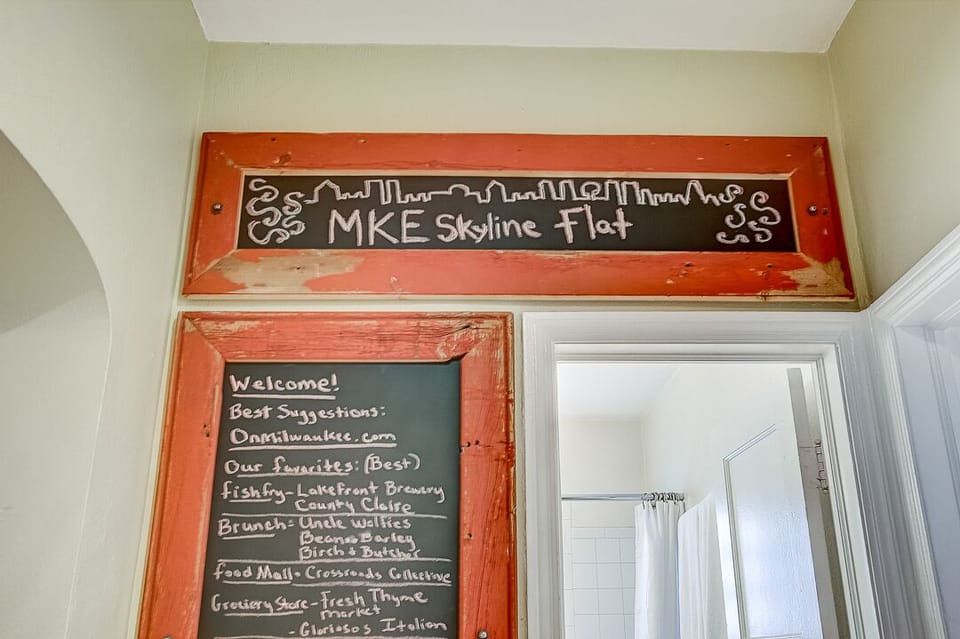 MKE Skyline Flat
Welcome!
Best Suggestions:
OnMilwaukee.com
Our favorites: (Best)
fishfry - Lakefront Brewery
County Claire
Brunch - Uncle Wolfies
Beans & Barley
Birch & Butcher
food Mall - Crossroads Collective
Grocery Store - Fresh Thyme
market
- Glorioso's Italian